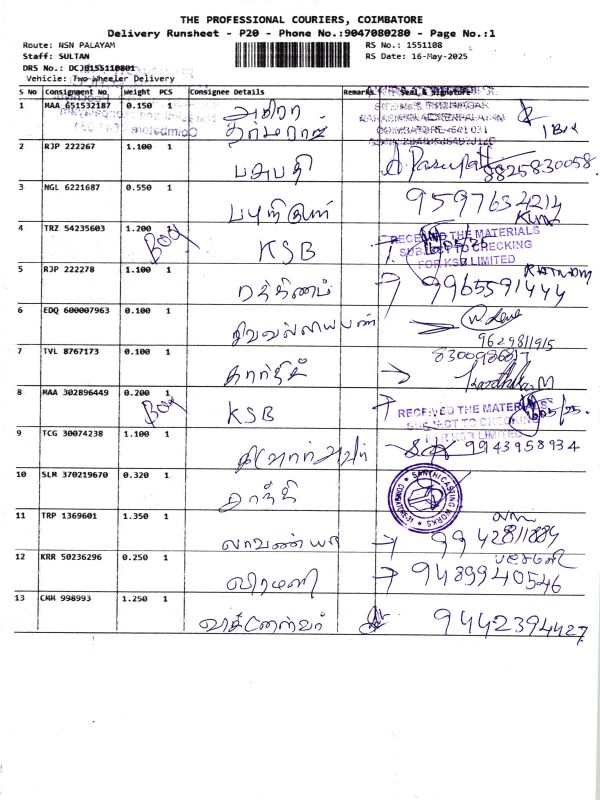 THE PROFESSIONAL COURIERS, COIMBATORE
Delivery Runsheet - P20 - Phone No.:9047080280 - Page No.:1
Route: NSN PALAYAM RS No.: 1551108
Staff: SULTAN RS Date: 16-May-2025
DRS No.: DCJB155110801
Vehicle: Two Wheeler Delivery
S No Consignment No. Weight PCS Consignee Details Remarks Seal & Signature
1 MAA 651532187 0.150 1
2 RJP 222267 1.100 1 பசுபதி 8825830058
3 NGL 6221687 0.550 1 9597632214
4 TRZ 54235603 1.200 1 Boy KSB
RECEIVED THE MATERIALS
SUBJECT TO CHECKING
FOR KSB LIMITED
5 RJP 222278 1.100 1 ரத்தினம் → 9965591444
6 EDQ 600007963 0.100 1 9629811915
7 TVL 8767173 0.100 1 கார்திக்
8 MAA 302896449 0.200 1 Boy KSB
RECEIVED THE MATERIALS
SUBJECT TO CHECKING
FOR KSB LIMITED
9 TCG 30074238 1.100 1 9943958934
10 SLM 370219670 0.320 1 சாந்தி
SANTHI CASTING WORKS
11 TRP 1369601 1.350 1 லாவண்யா → 9942811884
12 KRR 50236296 0.250 1 வீரமணி → 9489940546
13 CMM 998993 1.250 1 9442394427